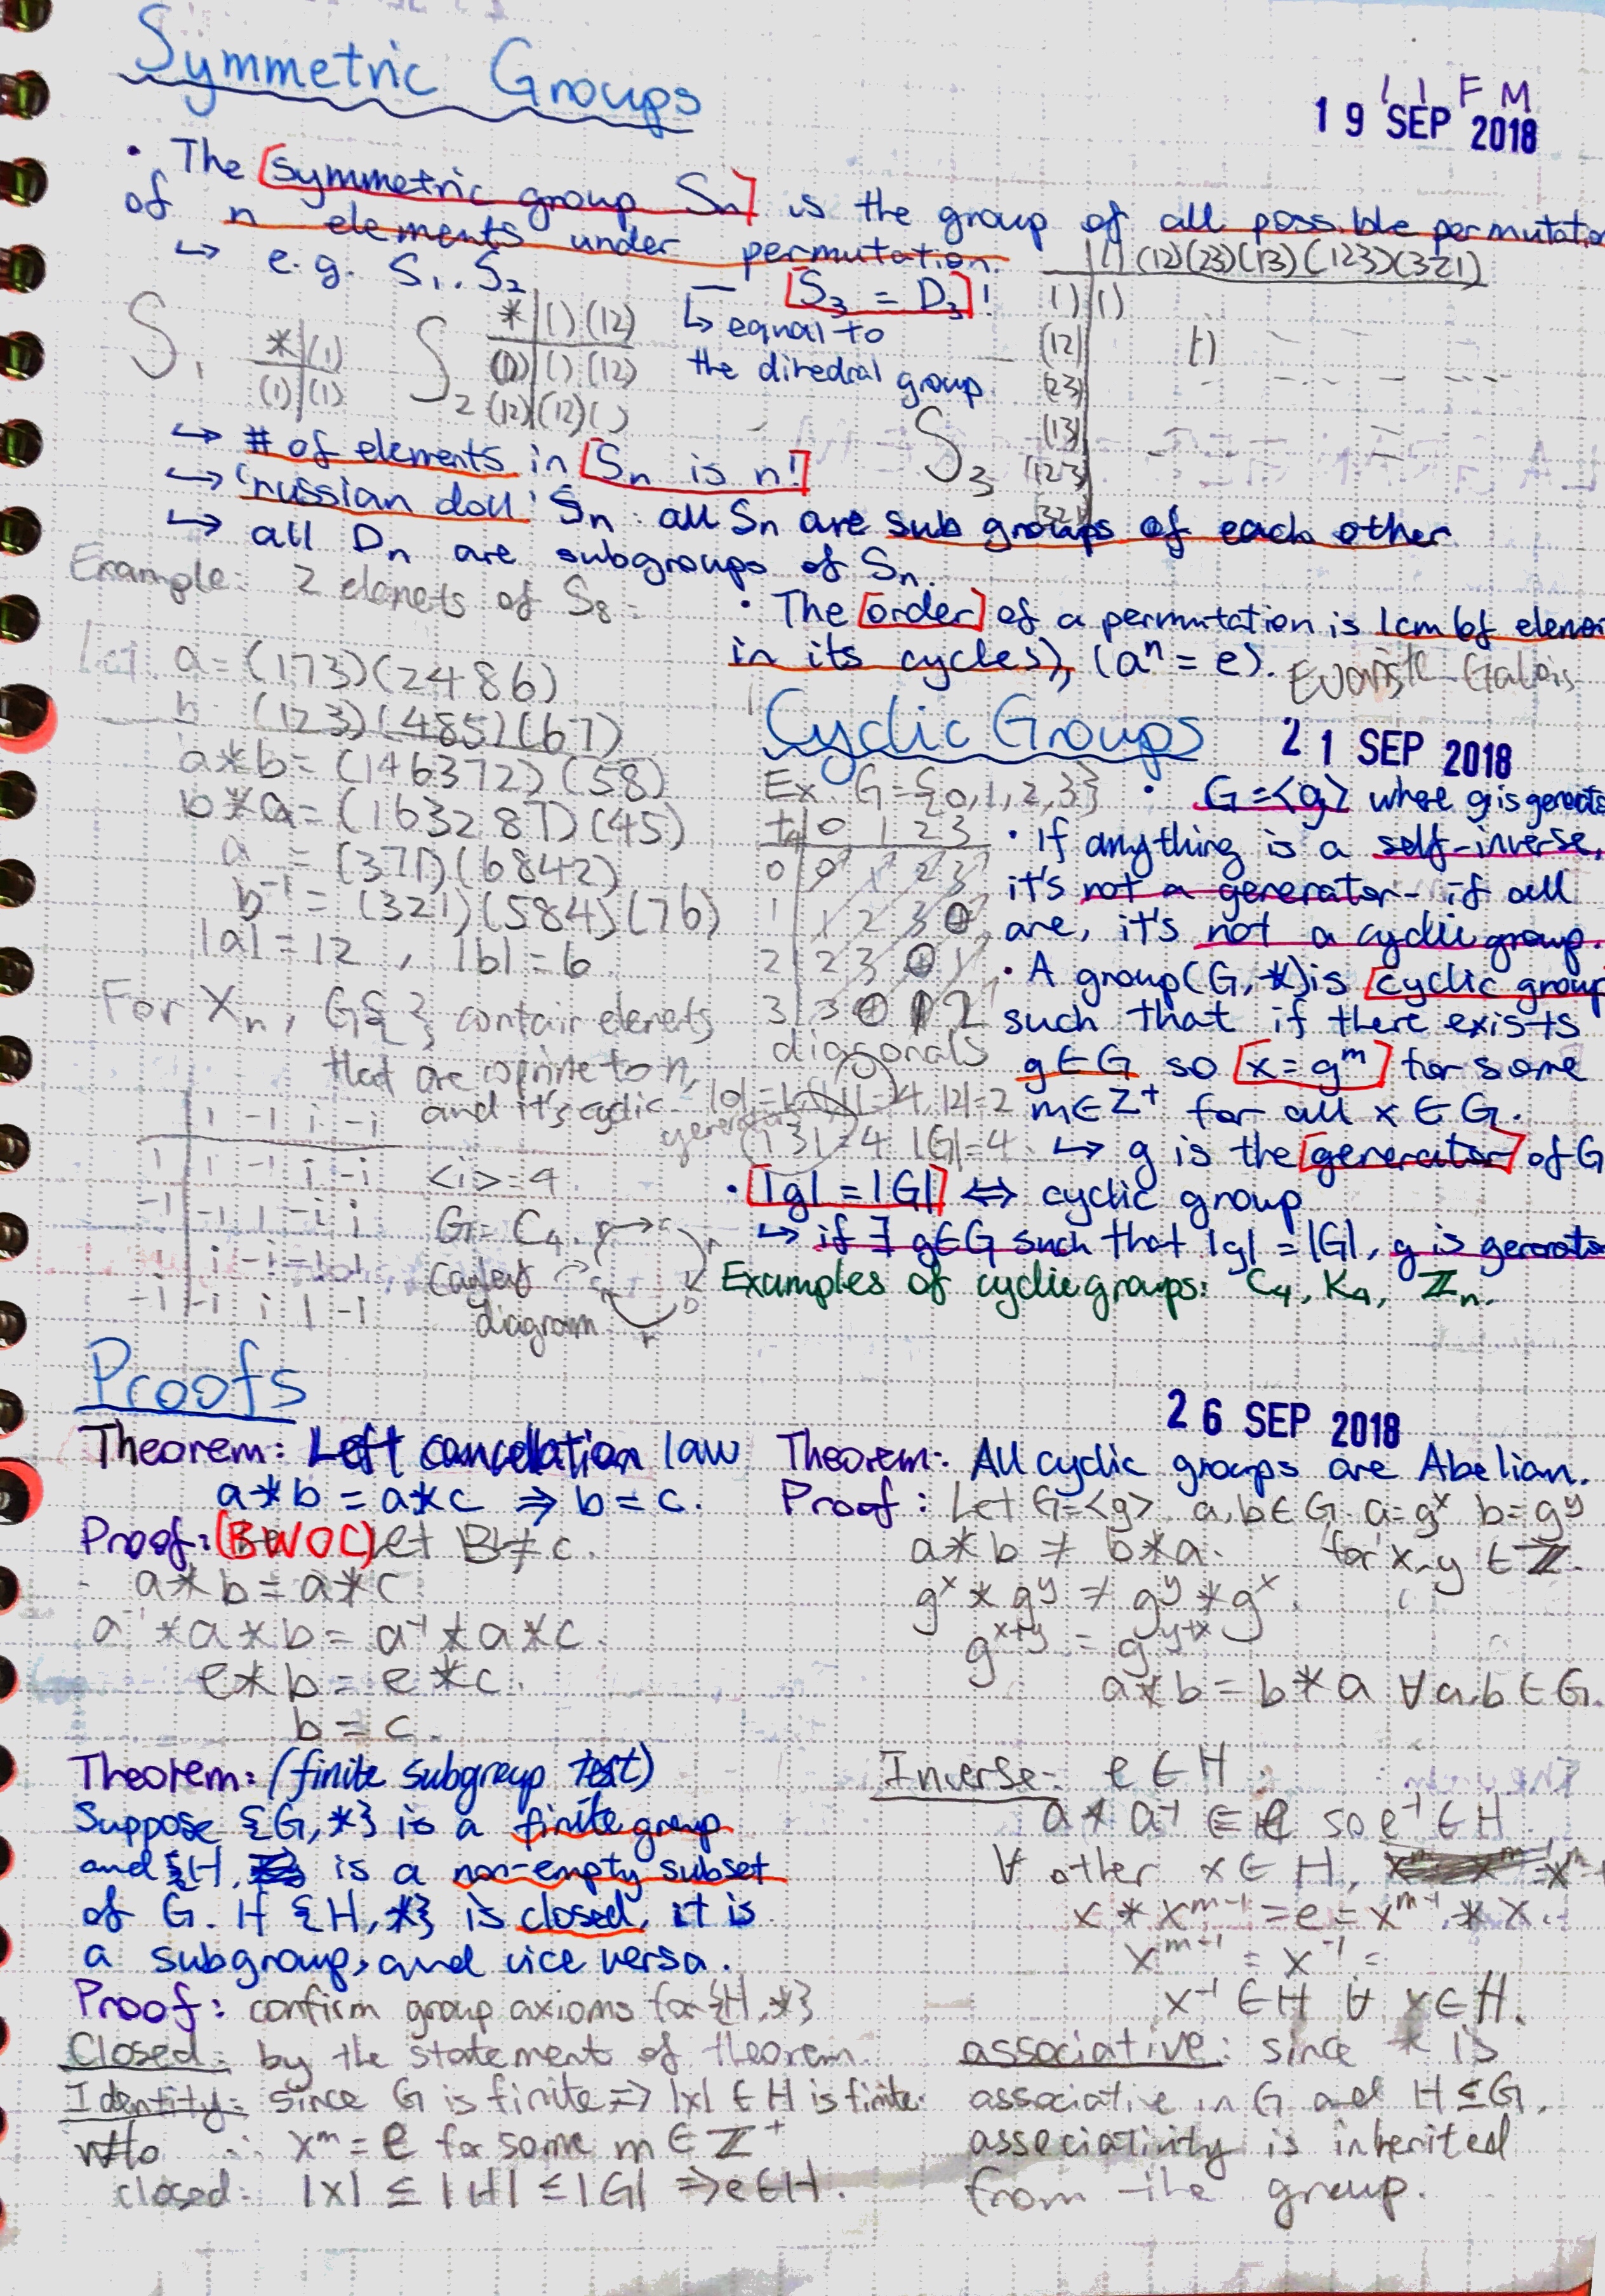 Symmetric Groups
11 FM
19 SEP 2018
• The [symmetric group Sn] is the group of all possible permutatio
of n elements under permutation.
↳ e.g. S₁, S₂ — [S₃ = D₃]!
↳ equal to
the dihedral group
S₁
* | (1)
(1) | (1)
S₂
* | () (12)
() | () (12)
(12) | (12) ()
S₃
() (12)(23)(13)(123)(321)
() | ()
(12) ()
(23)
(13)
(123)
(321)
↳ # of elements in [Sn is n!]
↳ 'russian doll' Sn: all Sn are sub groups of each other
↳ all Dn are subgroups of Sn.
Example: 2 elemets of S₈:
Let a = (173)(2486)
b (123)(485)(67)
a*b = (146372)(58)
b*a = (163287)(45)
a = (371)(6842)
b⁻¹ = (321)(584)(76)
|a| = 12 , |b| = 6
For Xn, G{ } contain elemets
that are coprime to n,
and it's cyclic
1 -1 i -i
1 | 1 -1 i -i
-1 | -1 1 -i i
i -i -1 1
-i | -i i 1 -1
<i> = 4
G = C₄.
Cayley
diagram
• The [order] of a permutation is lcm (of elemen
in its cycles), (aⁿ = e).
Evariste Galois
Cyclic Groups
21 SEP 2018
Ex. G = {0,1,2,3}
+₄ | 0 1 2 3
0 | 0 1 2 3
1 | 1 2 3 0
2 | 2 3 0 1
3 | 3 0 1 2
diagonals
|0| = 1 |1| = 4, |2| = 2
generator |3| = 4 |G| = 4
• G = <g> where g is generato
• If anything is a self-inverse,
it's not a generator - if all
are, it's not a cyclic group.
• A group (G, *) is [cyclic group
such that if there exists
g ∈ G so [x = gᵐ] for some
m ∈ Z⁺ for all x ∈ G.
↳ g is the [generator] of G
• [|g| = |G|] ⇔ cyclic group
↳ if ∃ g∈G such that |g| = |G|, g is generato
Examples of cyclic groups: C₄, K₄, ℤn.
Proofs
26 SEP 2018
Theorem: Left cancellation law
a*b = a*c ⇒ b = c.
Proof: (BWOC) let B ≠ c.
a*b = a*c
a⁻¹*a*b = a⁻¹*a*c.
e*b = e*c.
b = c.
Theorem: All cyclic groups are Abelian.
Proof: Let G = <g>. a,b ∈ G. a = gˣ b = gʸ
a*b ≠ b*a. for x,y ∈ ℤ.
gˣ * gʸ ≠ gʸ * gˣ.
gˣ⁺ʸ = gʸ⁺ˣ
a*b = b*a ∀ a,b ∈ G.
Theorem: (finite subgroup test)
Suppose {G,*} is a finite group
and {H, is a non-empty subset
of G. If {H,*} is closed, it is
a subgroup, and vice versa.
Proof: confirm group axioms for {H,*}
Closed: by the statement of theorem.
Identity: since G is finite ⇒ |x| ∈ H is finite.
∴ xᵐ = e for some m ∈ ℤ⁺
closed: |x| ≤ |H| ≤ |G| ⇒ e∈H.
Inverse: e ∈ H
a * a⁻¹ ∈ e so e⁻¹ ∈ H
∀ other x ∈ H,
x * xᵐ⁻¹ = e = xᵐ⁻¹ * x.
xᵐ⁻¹ = x⁻¹ =
x⁻¹ ∈ H ∀ x∈H.
associative: since * is
associative in G and H ≤ G,
associativity is inherited
from the group.